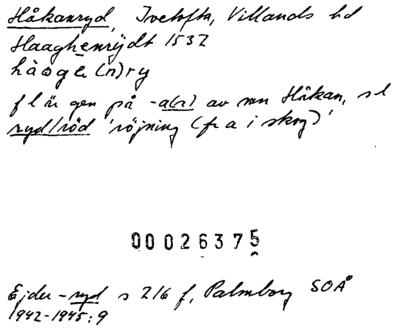 Håkanryd, Ivetofta, Villands hd
Haaghenrydt 1532
hàoge(n)ry
f l är gen på -a(r) av mn Håkan, sl
ryd/röd 'röjning (fr a i skog)'
00026375
Ejder -ryd s 216 f, Palmborg SOÅ
1942-1945:9